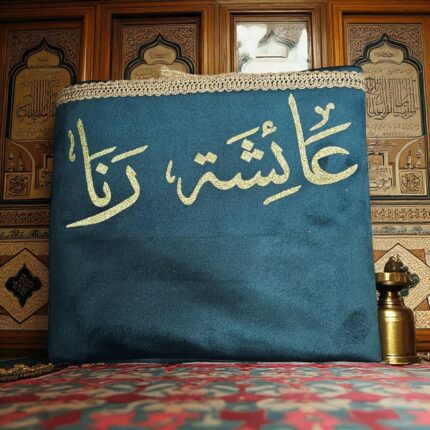 عَائِشَة رَنَا